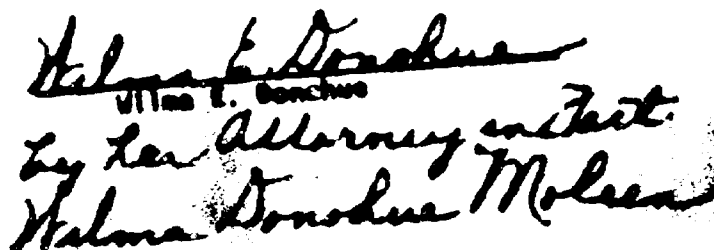 Wilma E. Donohue
Wilma E. Donohue
by her Attorney in Fact
Wilma Donohue Moleen